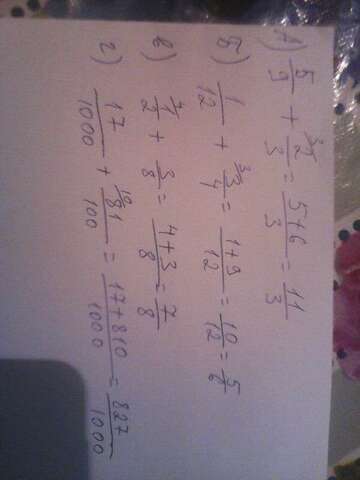 А) 5/9 + 3\2/3 = 5+6/3 = 11/3
Б) 1/12 + 3\3/4 = 1+9/12 = 10/12 = 5/6
в) 4\1/2 + 3/8 = 4+3/8 = 7/8
г) 17/1000 + 10\81/100 = 17+810/1000 = 827/1000